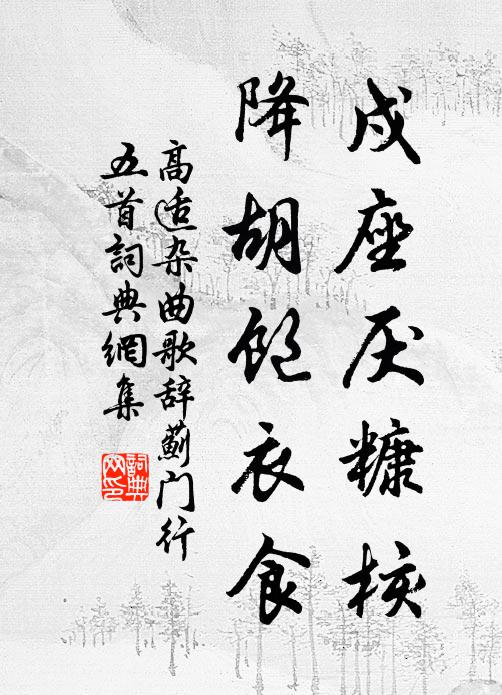 戍座厌糠核
降胡饱衣食
高适杂曲歌辞薊门行
五首詞典網集
詞典网印